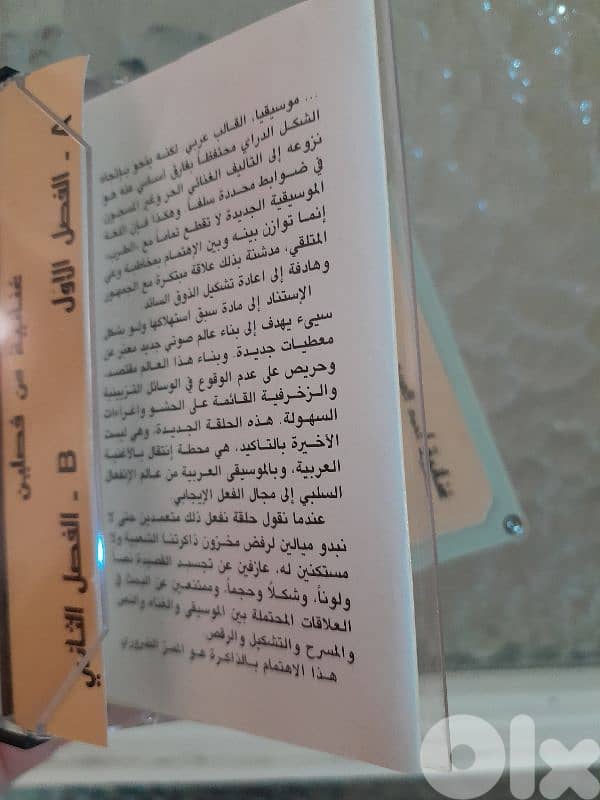 ... موسيقيا، القالب عربي لكنه ينحو باتجاه
الشكل الدرامي محتفظاً بفارق أساسي عنه هو
نزوعه إلى التأليف الغنائي الحر وغير المسجون
في ضوابط محددة سلفاً. وهكذا فإن اللغة
الموسيقية الجديدة لا تقطع تماماً مع الطرب،
إنما توازن بينه وبين الإهتمام بمخاطبة وعي
المتلقي، مدشنة بذلك علاقة مبتكرة مع الجمهور
وهادفة إلى اعادة تشكيل الذوق السائد
الإستناد إلى مادة سبق استهلاكها ولو بشكل
سيىء يهدف إلى بناء عالم صوتي جديد معبّر عن
معطيات جديدة. وبناء هذا العالم مقتصد
وحريص على عدم الوقوع في الوسائل التزيينية
والزخرفية القائمة على الحشو وإغراءات
السهولة. هذه الحلقة الجديدة، وهي ليست
الأخيرة بالتأكيد، هي محطة إنتقال بالأغنية
العربية، وبالموسيقى العربية من عالم الإنفعال
السلبي إلى مجال الفعل الإيجابي
عندما نقول حلقة نفعل ذلك متعمدين حتى لا
نبدو ميالين لرفض مخزون ذاكرتنا الشعبية ولا
مستكنين له، عازفين عن تجسيد القصيدة نصاً
ولوناً، وشكلاً وحجماً، وممتنعين عن البحث في
العلاقات المحتملة بين الموسيقى والغناء والنص
والمسرح والتشكيل والرقص
هذا الاهتمام بالذاكرة هو الممر الضروري
غنائية من فصلين
A - الفصل الأول
B - الفصل الثاني
غنائية
OLX